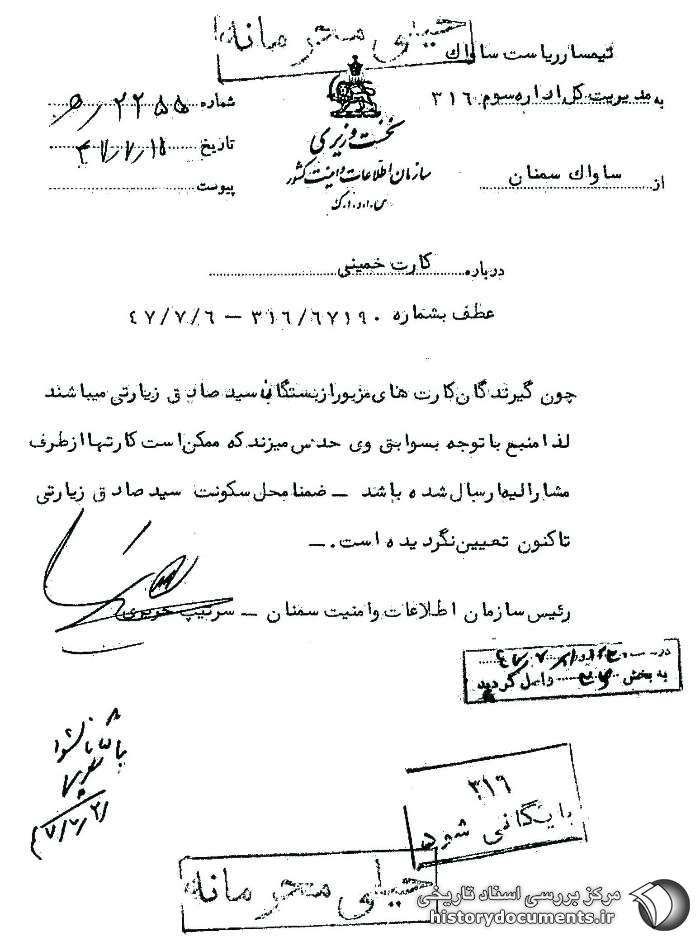 خیلی محرمانه
تیمسار ریاست ساواک
به مدیریت کل اداره سوم ۳۱۶
شماره ۲۲۵۵/ه
نخست وزیری
تاریخ
سازمان اطلاعات و امنیت کشور
س.ا.و.ا.ک
از ساواک سمنان
پیوست
درباره کارت خمینی
عطف بشماره ۳۱۶/۶۷۱۹۰ – ۴۷/۷/۶
چون گیرندگان کارت های مزبور از بستگان سید صادق زیارتی میباشند
لذا منبع با توجه بسوابق وی حدس میزند که ممکن است کارتها از طرف
مشارالیه ارسال شده باشد – ضمنا محل سکونت سید صادق زیارتی
تاکنون تعیین نگردیده است. –
رئیس سازمان اطلاعات و امنیت سمنان – سرتیپ حریری
به بخش واصل گردید
۳۱۶
بایگانی شود
خیلی محرمانه
مرکز بررسی اسناد تاریخی
historydocuments.ir